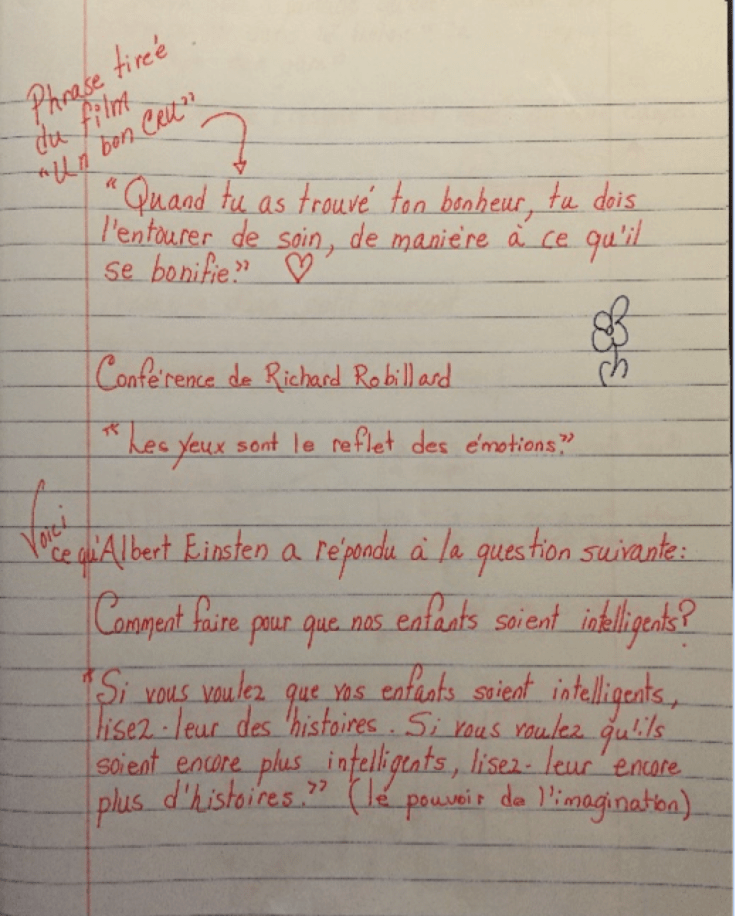 Phrase tirée
du film
"Un bon CRU"
"Quand tu as trouvé ton bonheur, tu dois
l'entourer de soin, de manière à ce qu'il
se bonifie." ♡
Conférence de Richard Robillard
"Les yeux sont le reflet des émotions."
Voici
ce qu'Albert Einsten a répondu à la question suivante:
Comment faire pour que nos enfants soient intelligents?
"Si vous voulez que vos enfants soient intelligents,
lisez-leur des histoires. Si vous voulez qu'ils
soient encore plus intelligents, lisez-leur encore
plus d'histoires." (le pouvoir de l'imagination)